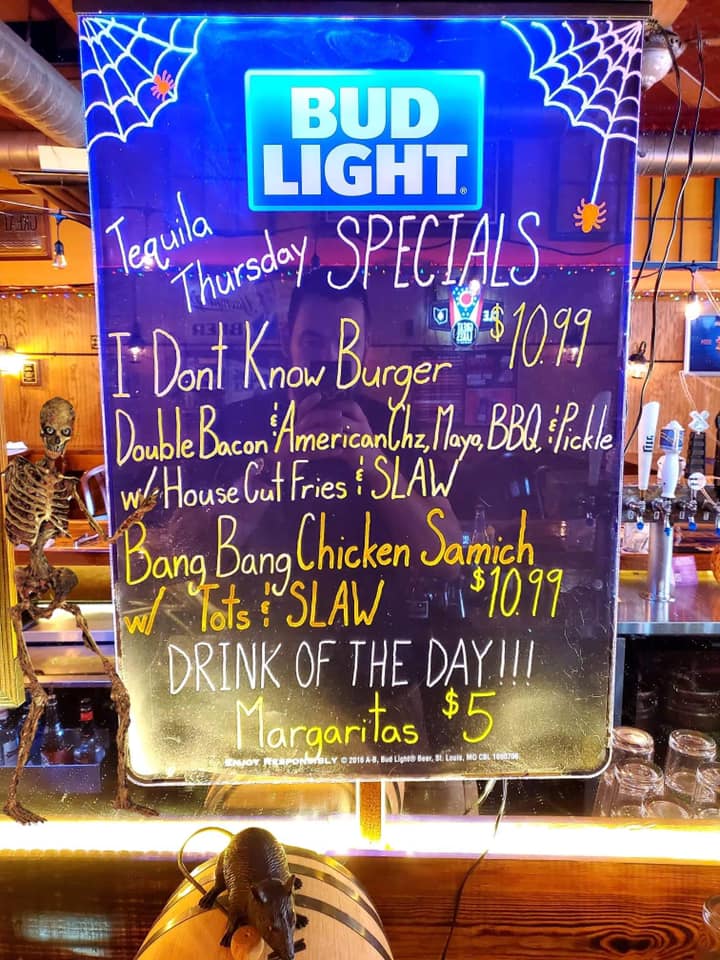 BUD
LIGHT
Tequila
Thursday SPECIALS
I Dont Know Burger $10.99
Double Bacon & American Chz, Mayo, BBQ, & Pickle
w/ House Cut Fries & SLAW
Bang Bang Chicken Samich
w/ Tots & SLAW $10.99
DRINK OF THE DAY!!!
Margaritas $5
ENJOY RESPONSIBLY © 2016 A-B, Bud Light® Beer, St. Louis, MO